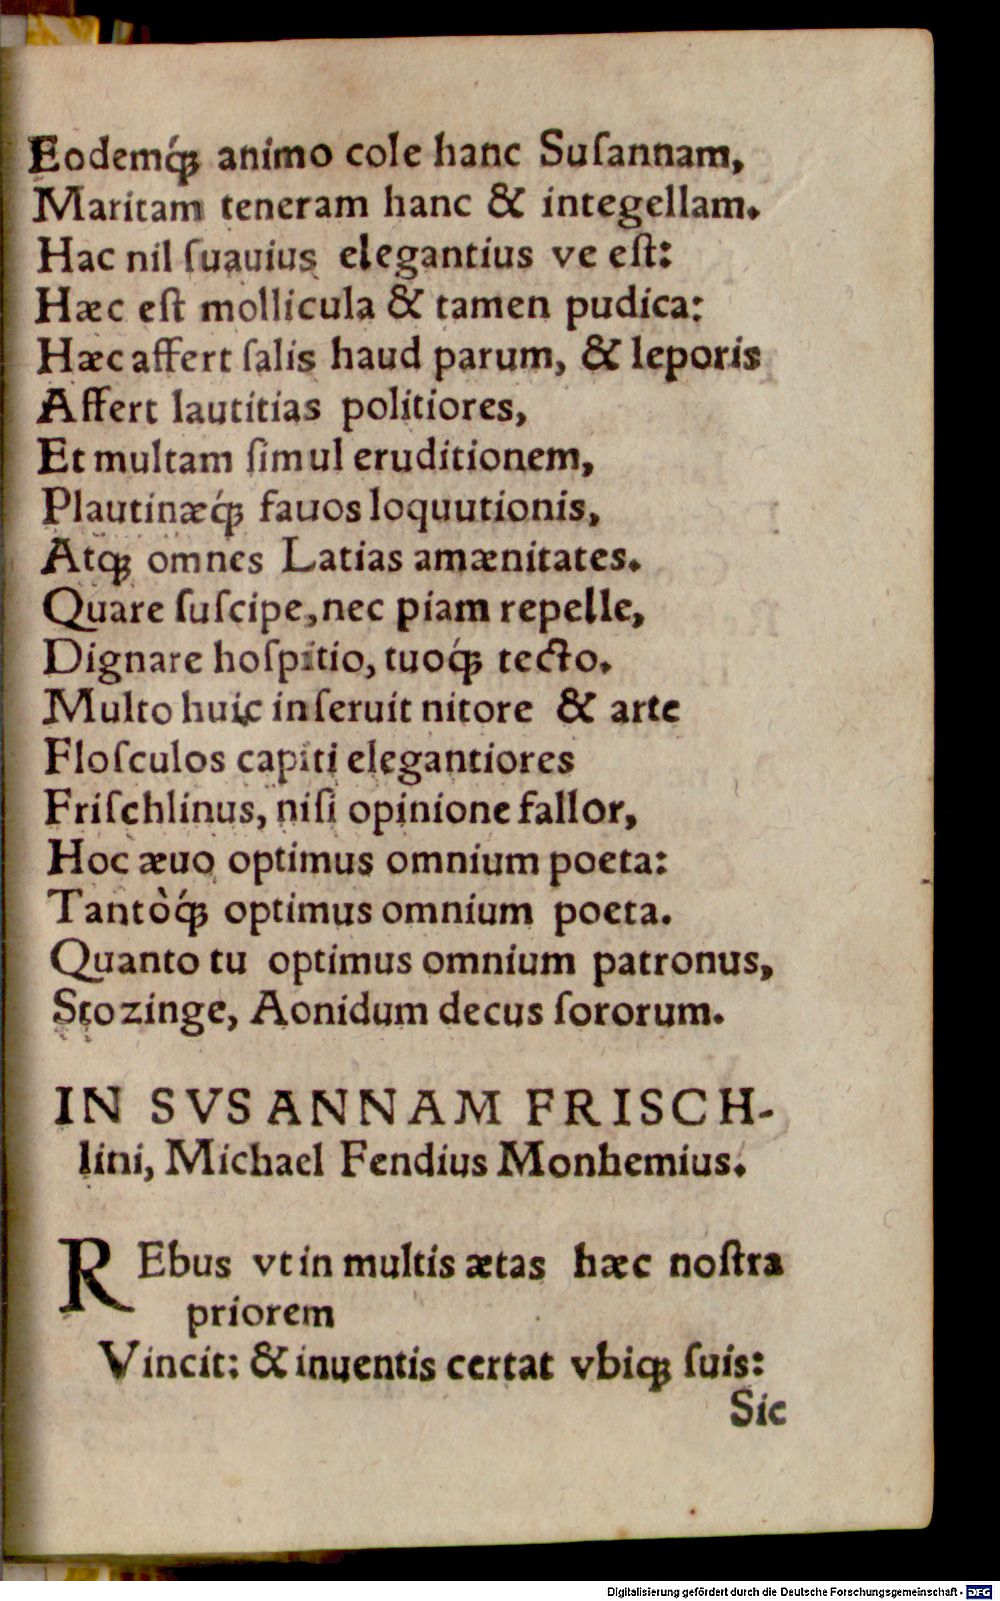 Eodemq́ꝫ animo cole hanc Suſannam,
Maritam teneram hanc & integellam.
Hac nil ſuauius elegantius ve eſt:
Hæc eſt mollicula & tamen pudica:
Hæc affert ſalis haud parum, & leporis
Affert lautitias politiores,
Et multam ſimul eruditionem,
Plautinæq́ꝫ fauos loquutionis,
Atqꝫ omnes Latias amænitates.
Quare ſuſcipe, nec piam repelle,
Dignare hoſpitio, tuoq́ꝫ tecto.
Multo huic inſeruit nitore & arte
Floſculos capiti elegantiores
Friſchlinus, niſi opinione fallor,
Hoc æuo optimus omnium poeta:
Tantòq́ꝫ optimus omnium poeta.
Quanto tu optimus omnium patronus,
Stozinge, Aonidum decus ſororum.
IN SVSANNAM FRISCH-
lini, Michael Fendius Monhemius.
REbus vt in multis ætas hæc noſtra
priorem
Vincit: & inuentis certat vbiqꝫ ſuis:
Sic
Digitalisierung gefördert durch die Deutsche Forschungsgemeinschaft - DFG